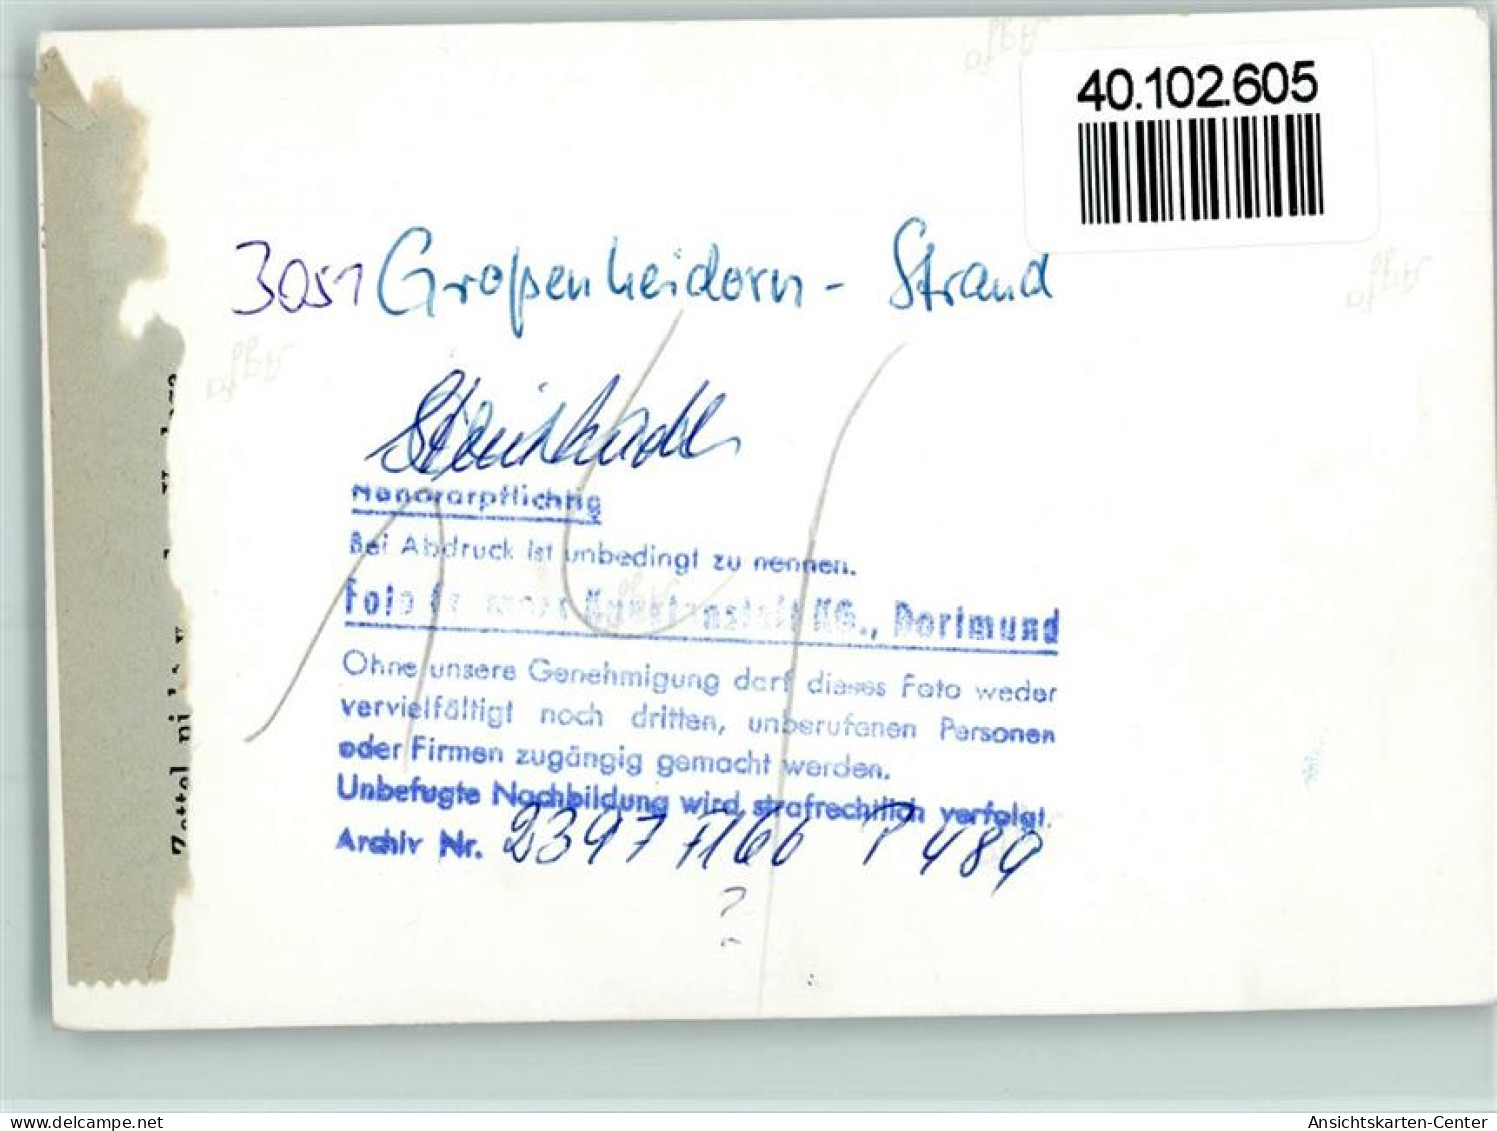 40.102.605
3051 Großenheidorn - Strand
Steinhude
Honorarpflichtig
Bei Abdruck ist unbedingt zu nennen.
Foto Kunstanstalt KG., Dortmund
Ohne unsere Genehmigung darf dieses Foto weder
vervielfältigt noch dritten, unberufenen Personen
oder Firmen zugängig gemacht werden.
Unbefugte Nachbildung wird strafrechtlich verfolgt.
Archiv Nr. 2397 7166 P 489
?
Agfa
Agfa
Agfa
delcampe.net
Ansichtskarten-Center